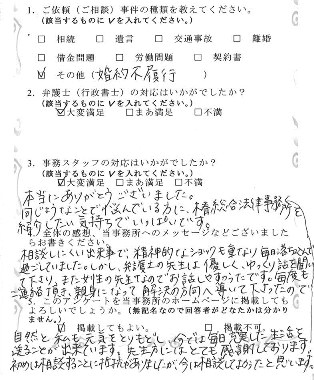 1. ご依頼（ご相談）事件の種類を教えてください。
（該当するものにレを入れてください。）
□ 相続 □ 遺言 □ 交通事故 □ 離婚
□ 借金問題 □ 労働問題 □ 契約書
☑ その他（婚約不履行）
2. 弁護士（行政書士）の対応はいかがでしたか？
（該当するものにレを入れてください。）
☑大変満足 □まあ満足 □不満
3. 事務スタッフの対応はいかがでしたか？
（該当するものにレを入れてください。）
☑大変満足 □まあ満足 □不満
本当にありがとうございました。
同じようなことで悩んでいる方に、椿総合法律事務所を
紹介したい気持ちでいっぱいです。
4. 全体の感想、当事務所へのメッセージなどございました
らお書きください。
相談しにくい出来事で、精神的なショックも重なり毎日落ち込んで
過ごしていました。しかし、弁護士の先生は優しく、ゆっくり話を聞い
て下さり、また女性の先生なのでお話しやすかったです。毎度も
連絡頂き、親身になって解決の方向へ導いて下さったので
5. このアンケートを当事務所のホームページに掲載しても
よろしいでしょうか。（無記名なので回答者がどなたか分かり
ません。）
☑ 掲載してもよい。 □ 掲載不可。
自然と私も元気をとりもどし、今では毎日充実した生活を
送ることが出来ています。先生方にはとても感謝しております。
初めは相談することに抵抗がありましたが、今は相談してよかったと思います。